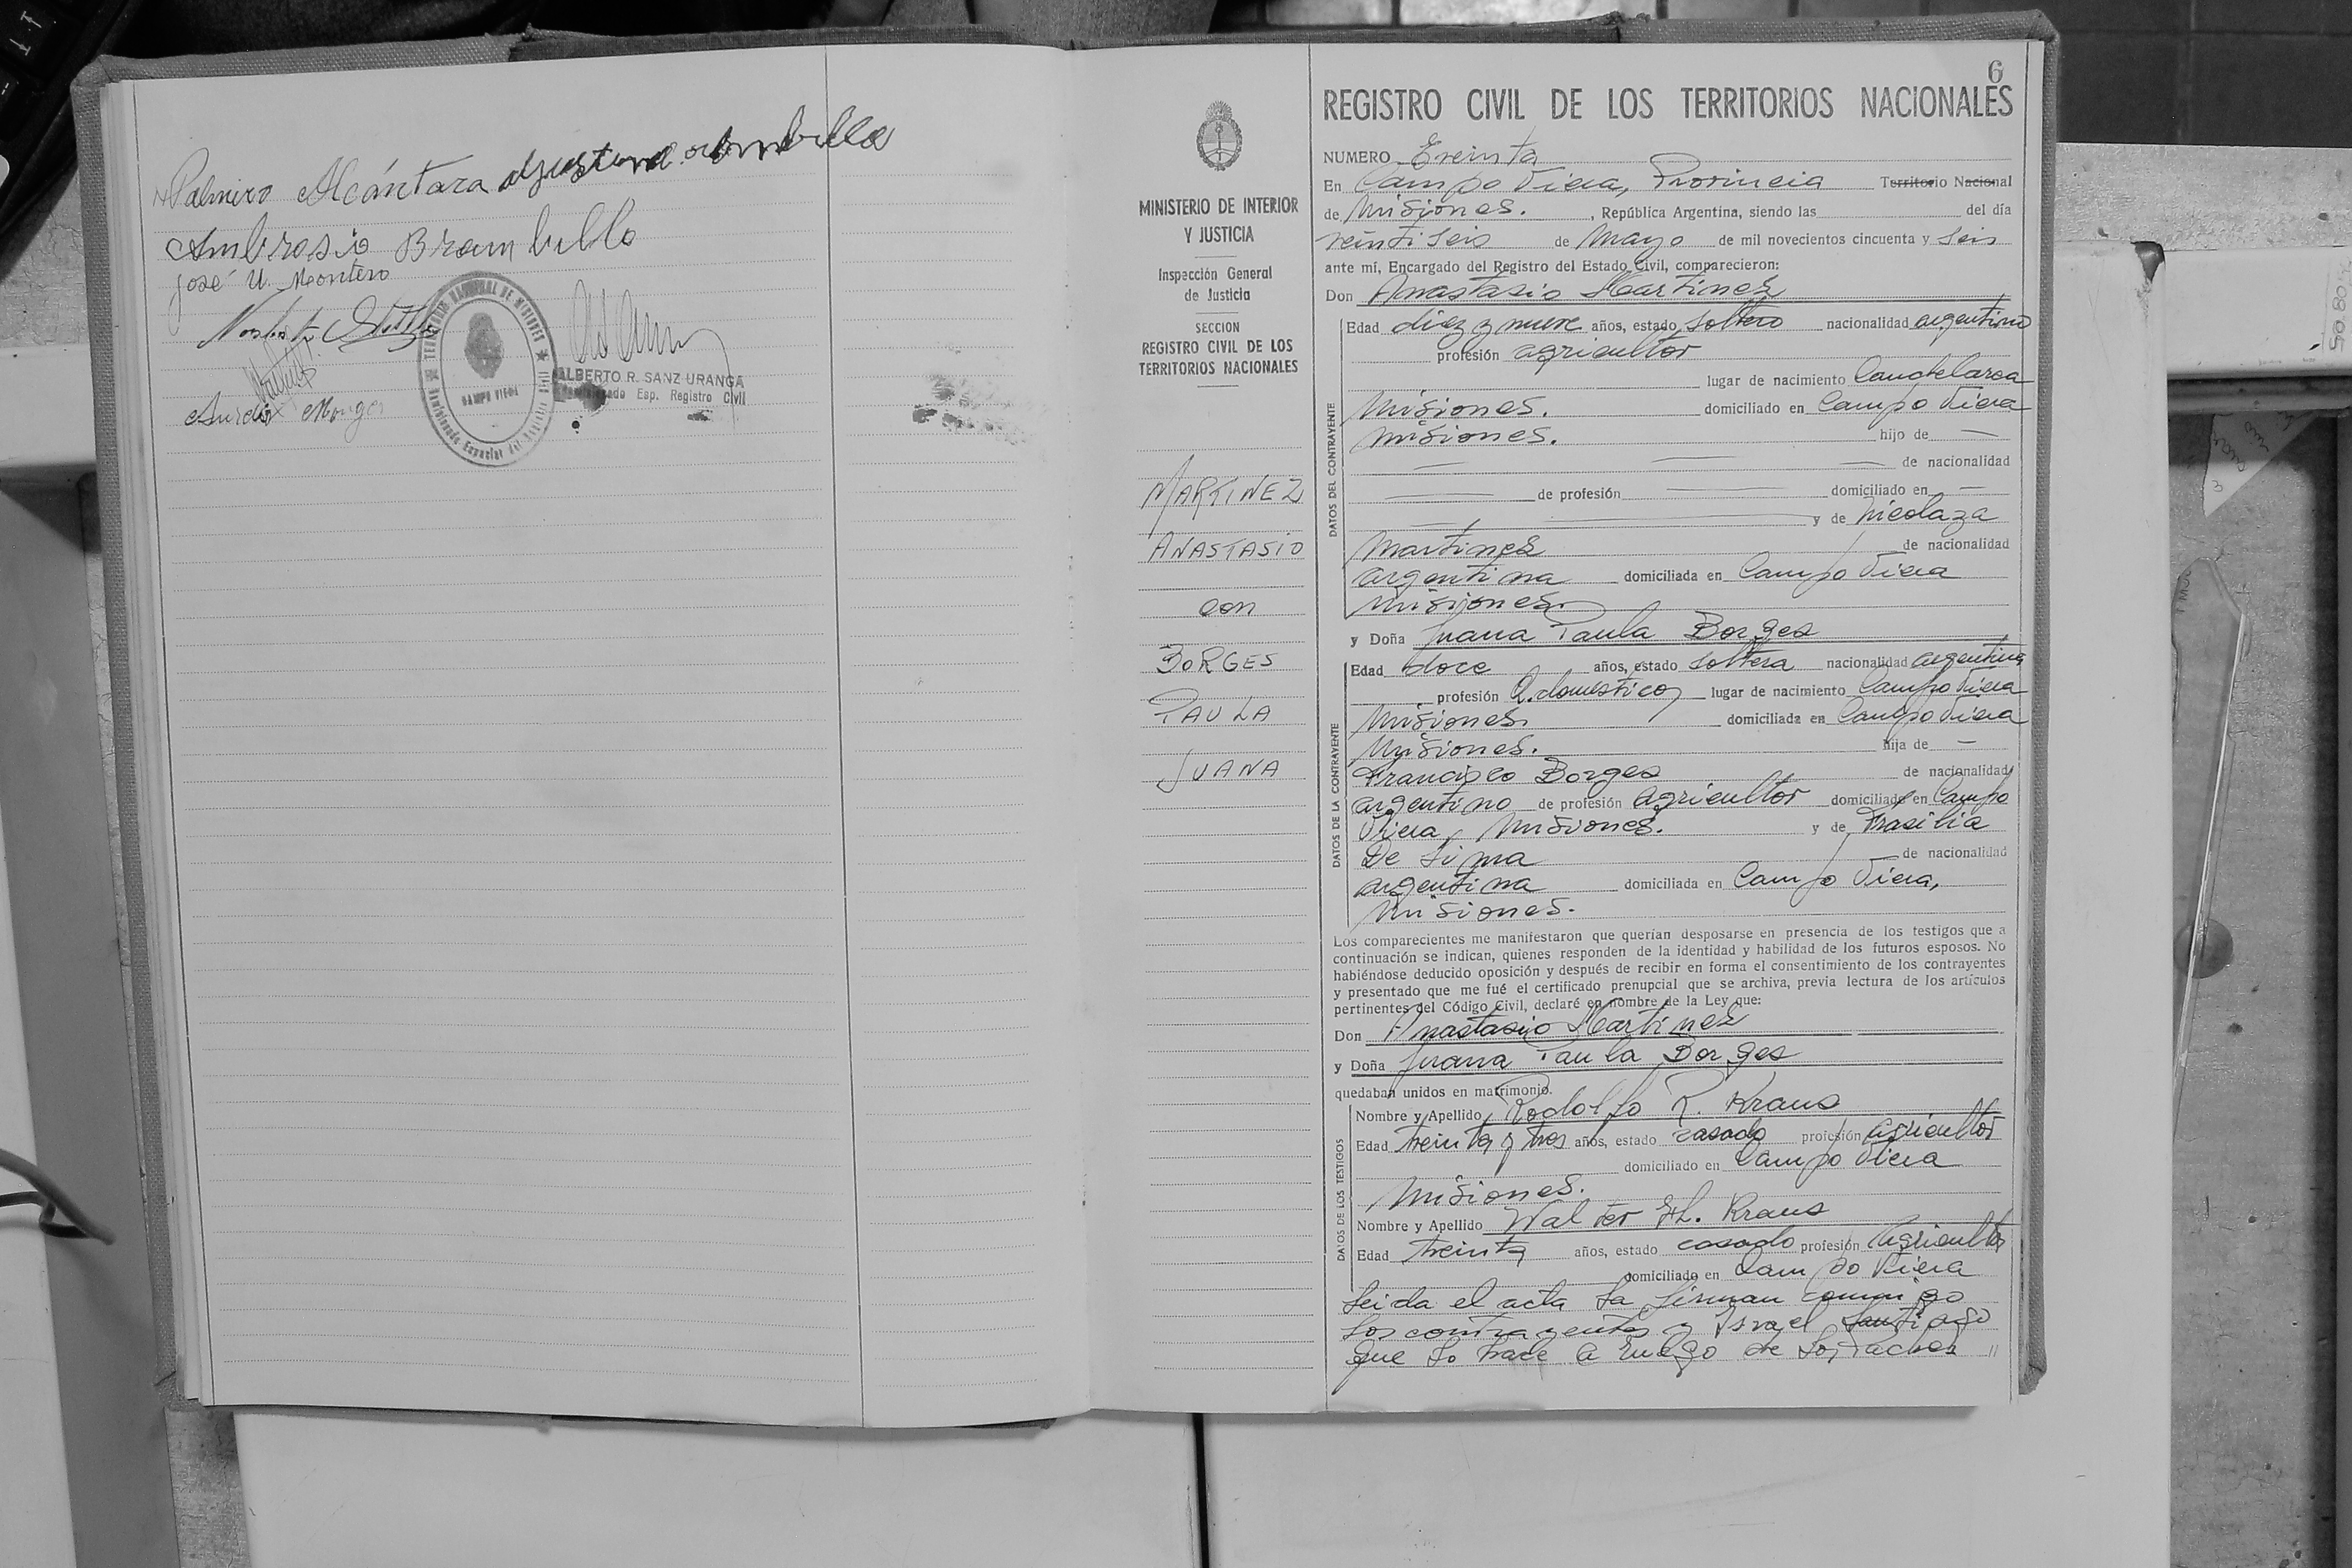 Palmiro Alcántara
Ambrosio Brambilla
José U. Montero
TERRITORIO NACIONAL DE MISIONES
CAMPO VIERA
ALBERTO R. SANZ URANGA
Esp. Registro Civil
6
MINISTERIO DE INTERIOR
Y JUSTICIA
Inspección General
de Justicia
SECCION
REGISTRO CIVIL DE LOS
TERRITORIOS NACIONALES
MARTINEZ
ANASTASIO
con
BORGES
PAULA
JUANA
REGISTRO CIVIL DE LOS TERRITORIOS NACIONALES
NUMERO Treinta
En Campo Viera, Provincia Territorio Nacional
de Misiones. , República Argentina, siendo las del día
veintiseis de Mayo de mil novecientos cincuenta y seis
ante mí, Encargado del Registro del Estado Civil, comparecieron:
Don Anastasio Martinez
DATOS DEL CONTRAYENTE
Edad diez y nueve años, estado soltero nacionalidad argentino
profesión agricultor
lugar de nacimiento Candelaria
Misiones. domiciliado en Campo Viera
Misiones. hijo de —
— — — de nacionalidad
— de profesión — domiciliado en —
— — y de Nicolaza
Martinez de nacionalidad
argentina domiciliada en Campo Viera
Misiones.
y Doña Juana Paula Borges
DATOS DE LA CONTRAYENTE
Edad doce años, estado soltera nacionalidad argentina
profesión Q. domesticos lugar de nacimiento Campo Viera
Misiones. domiciliada en Campo Viera
Misiones. hija de —
Francisco Borges de nacionalidad
argentino de profesión agricultor domiciliado en Campo
Viera, Misiones. y de Frasilia
De Lima de nacionalidad
argentina domiciliada en Campo Viera,
Misiones.
Los comparecientes me manifestaron que querían desposarse en presencia de los testigos que a
continuación se indican, quienes responden de la identidad y habilidad de los futuros esposos. No
habiéndose deducido oposición y después de recibir en forma el consentimiento de los contrayentes
y presentado que me fué el certificado prenupcial que se archiva, previa lectura de los artículos
pertinentes del Código Civil, declaré en nombre de la Ley que:
Don Anastasio Martinez
y Doña Juana Paula Borges
quedaban unidos en matrimonio.
DATOS DE LOS TESTIGOS
Nombre y Apellido Rodolfo R. Kraus
Edad treinta y tres años, estado casado profesión agricultor
domiciliado en Campo Viera
Misiones.
Nombre y Apellido Walter H. Kraus
Edad treinta años, estado casado profesión agricultor
domiciliado en Campo Viera
Leida el acta la firman conmigo
los contrayentes y Israel Santiago
que lo hace a ruego de los Padres "